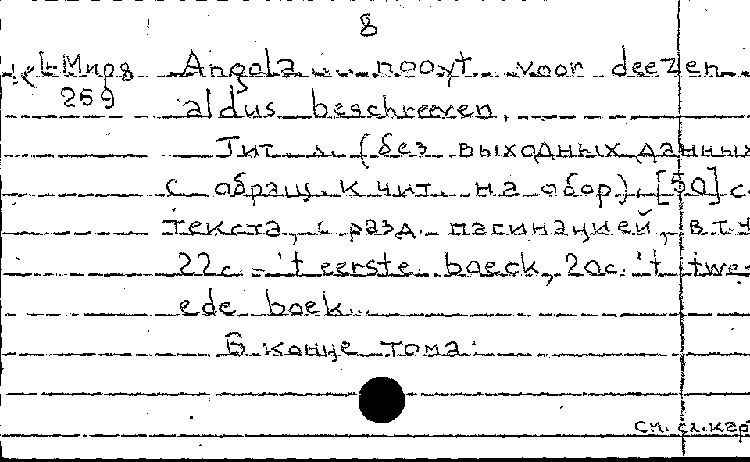 8
Мир8 Angola ... nooyt voor deezen
259 aldus beschreeven.
Тит. л. (без выходных данных
с обращ. к чит. на обор), [50] с.
текста, с разд. пагинацией, в т.ч
22с. - 't eerste boeck, 20с. 't twe-
ede boek...
В конце тома:
см. сл. кар